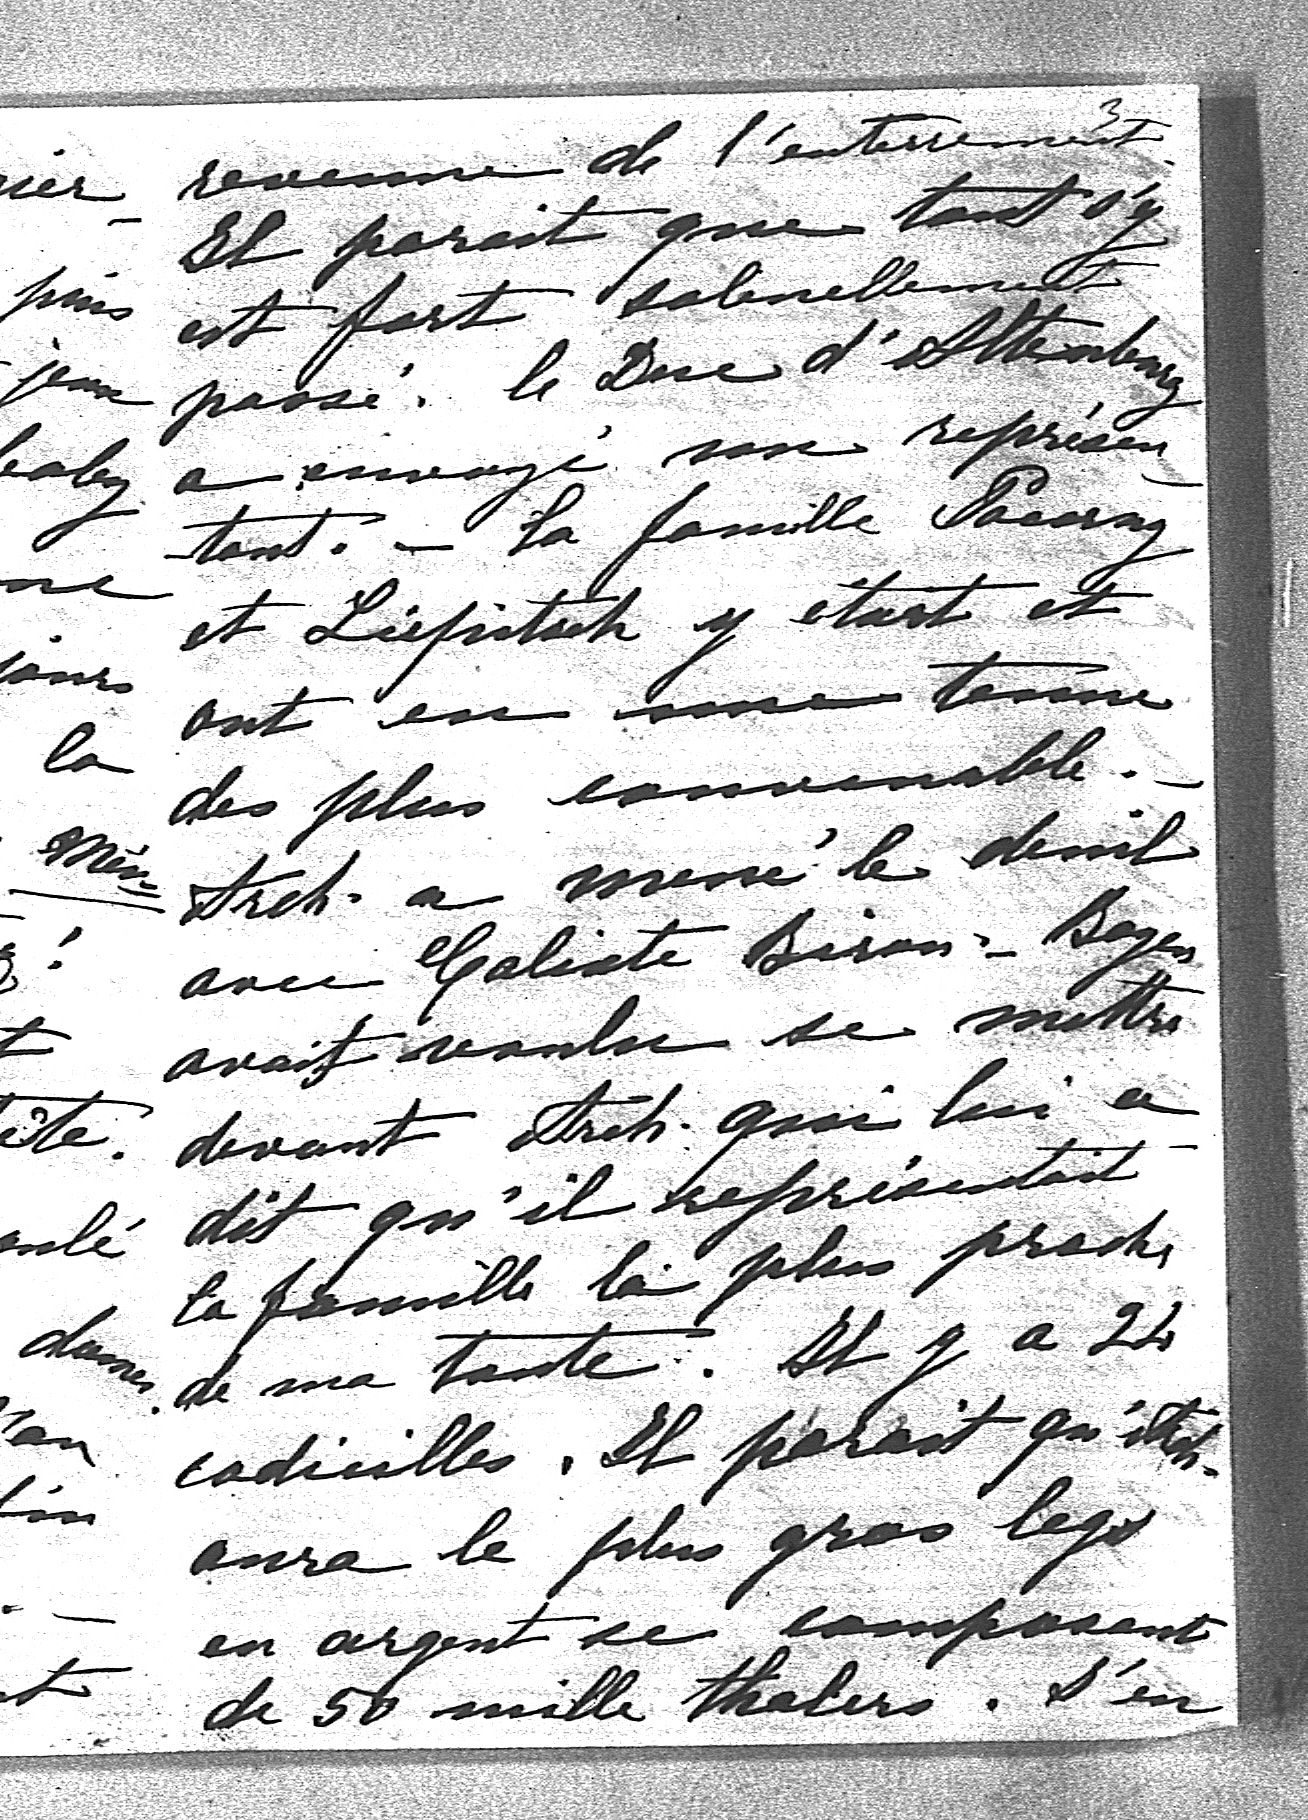 3
revenue de l'enterrement.
Il parait que tout s'y
est fort solenellement
passé. le Duc d'Altenburg
a envoyé son représen
tant. - La famille
et y etait et
ont eu une tenue
des plus convenable. -
Arch. a mené le deuil
avec Calixte Biron. - Boyen
avait voulu se mettre
devant Arch. qui lui a
dit qu'il représentait
la famille la plus proche
de ma tante. Il y a 24
codicilles. Il parait qu'Arch.
aura le plus gros legs
en argent se composant
de 50 mille thalers. J'en
puis
jeux
baby
jours
la
ête.
dames.